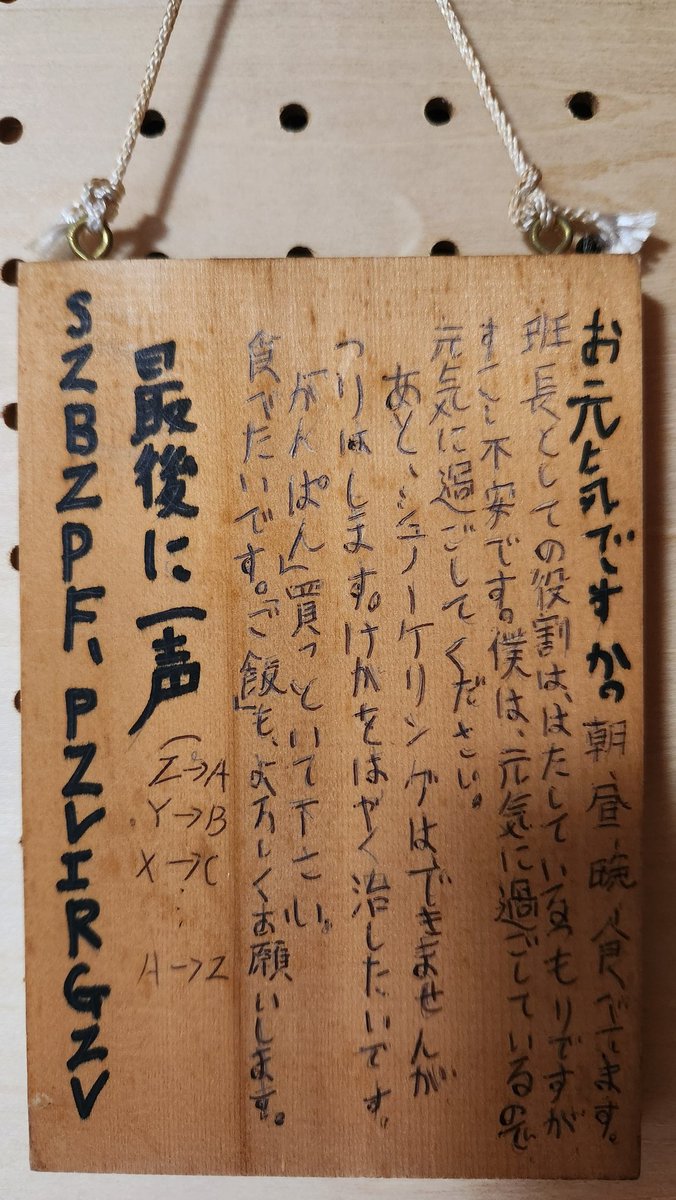 お元気ですか。朝、昼、晩、食べてます。
班長としての役割は、はたしているつもりですが
すこし不安です。僕は、元気に過ごしているので
元気に過ごしてください。
あと、シュノーケリングは、できませんが
つりはします。けがをはやく治したいです。
「がんぱん」買っといて下さい。
食べたいです。「ご飯」も、よろしくお願いします。
最後に一声
(Z→A
Y→B
X→C
⋮
A→Z
SZBZPF、PZVIRGZV